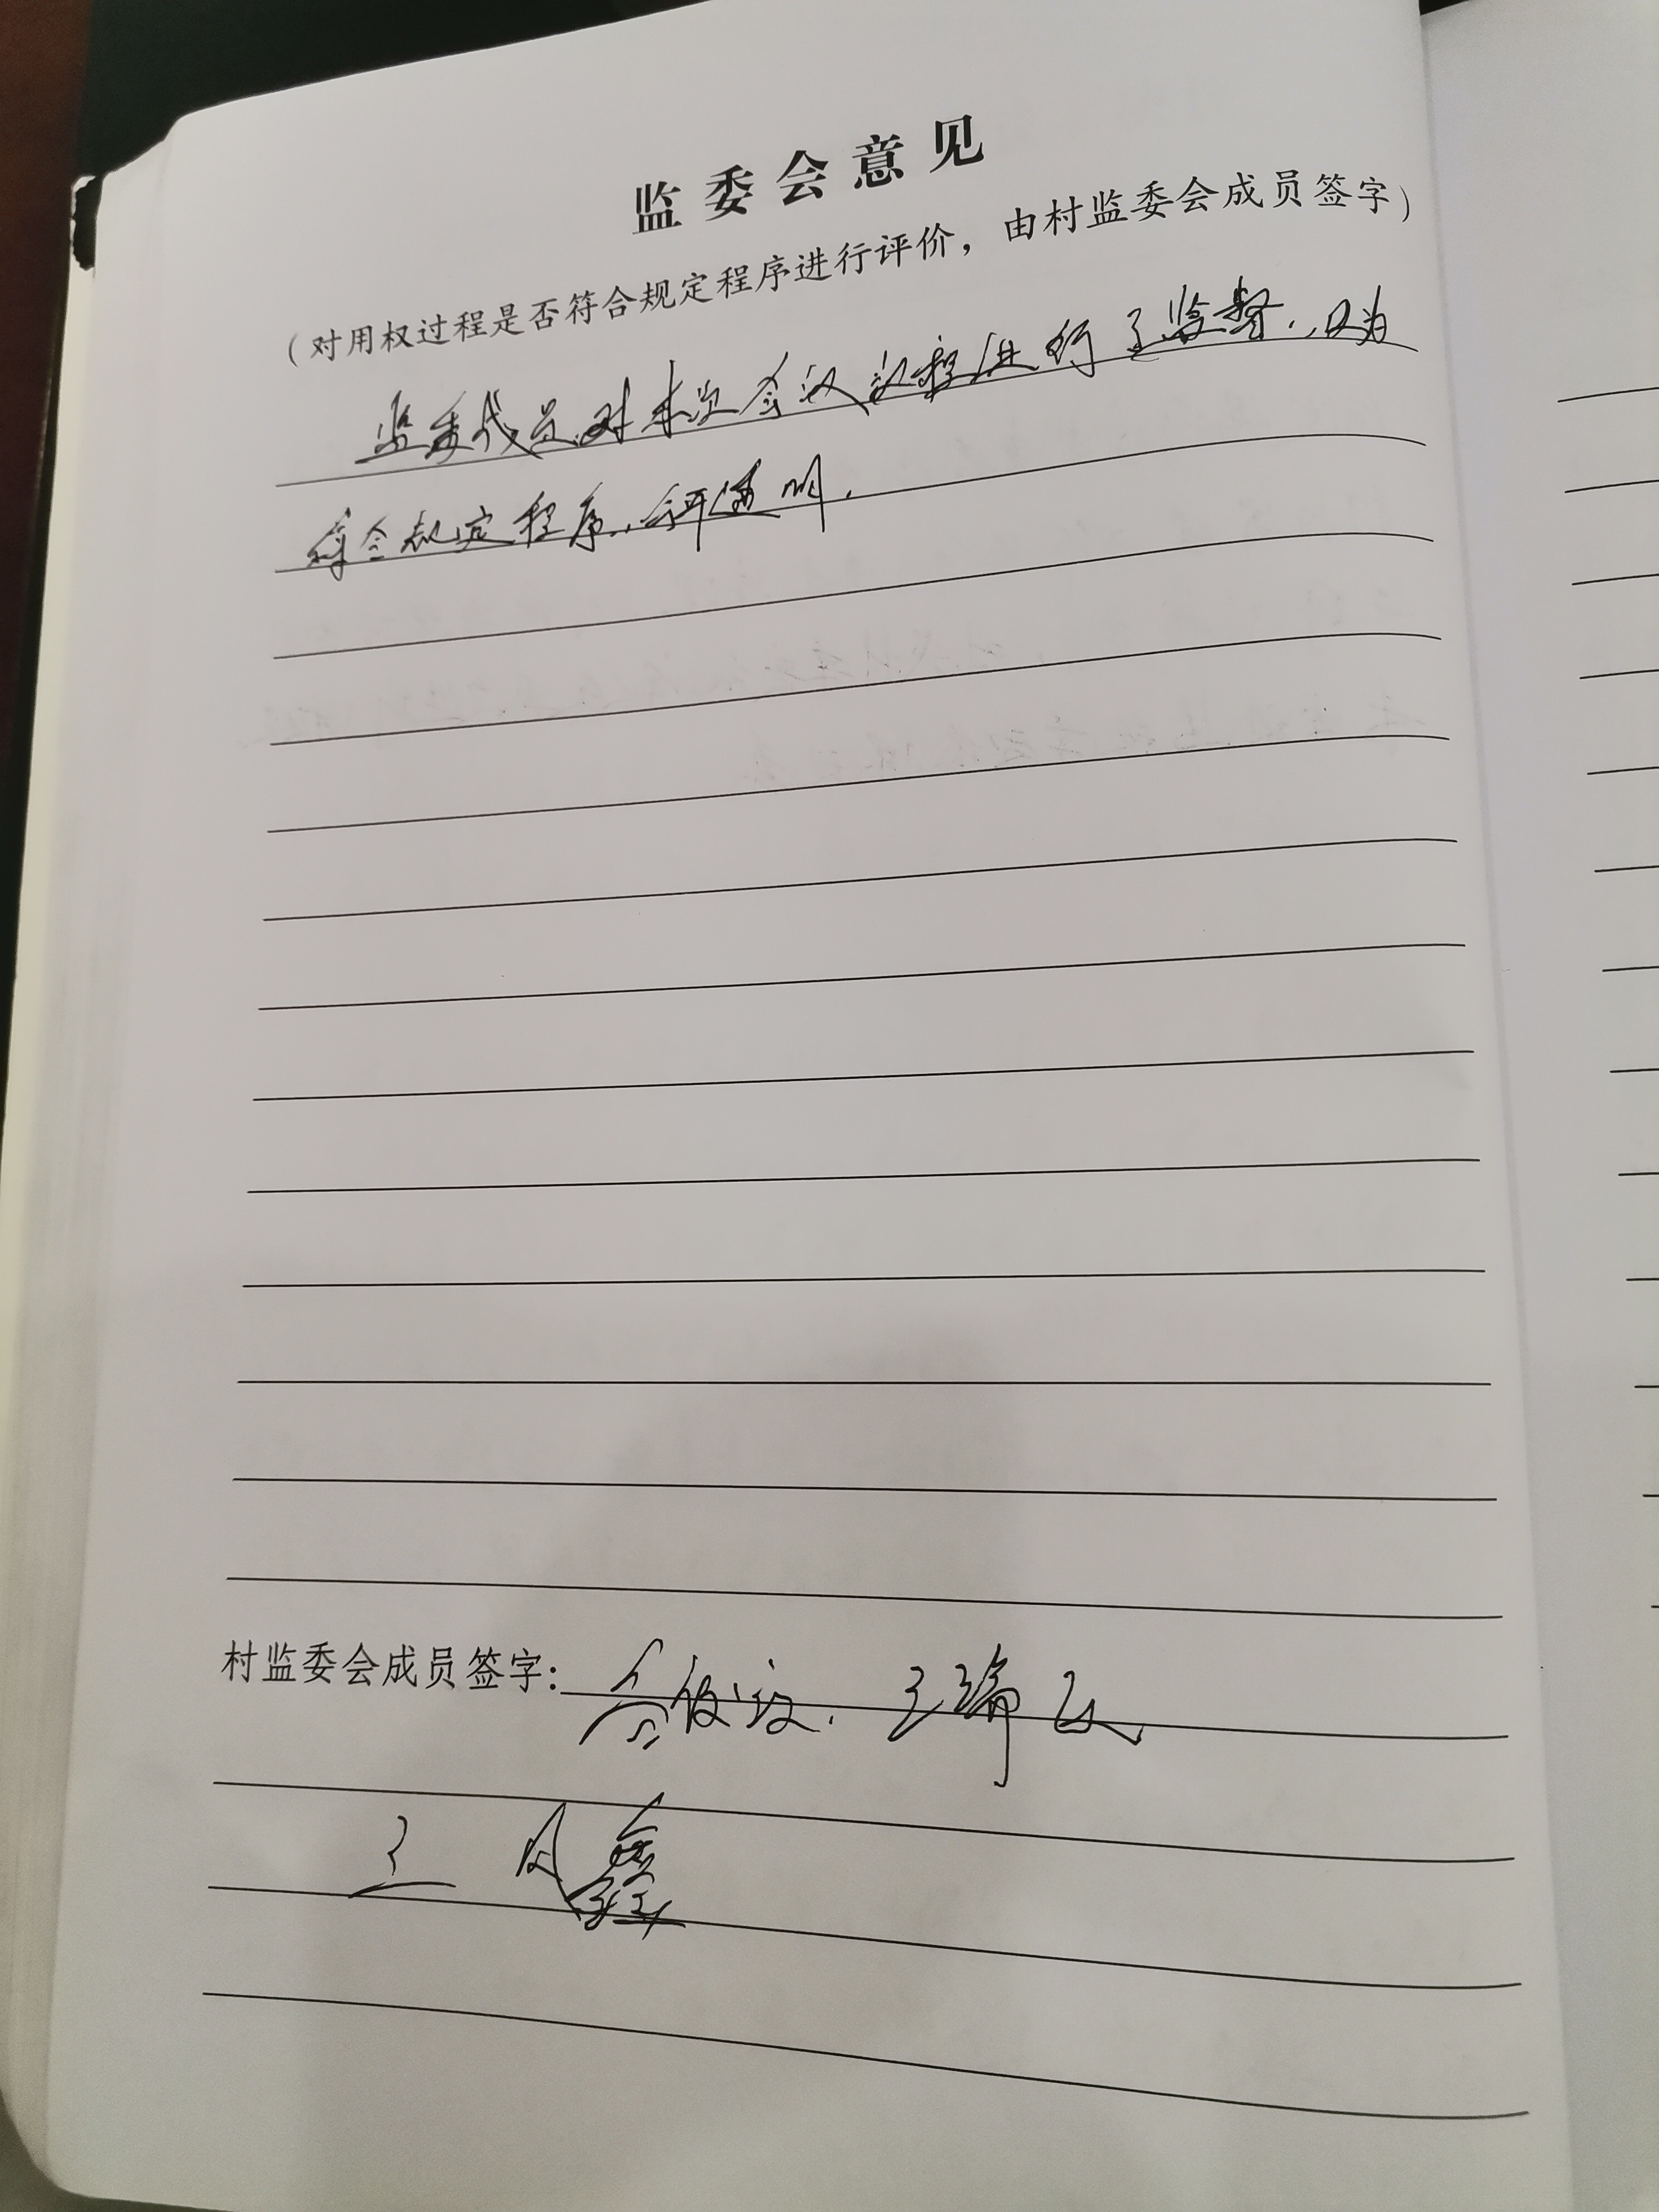 监委会意见
（对用权过程是否符合规定程序进行评价，由村监委会成员签字）
监委成员对本次会议议程进行了监督，认为
符合规定程序，公开透明．
村监委会成员签字： 王瑞
王凤鑫